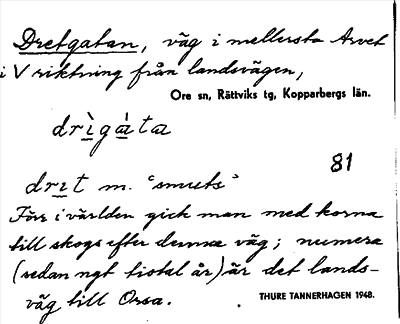 Dretgatan, väg i mellersta Arvet
i V riktning från landsvägen,
Ore sn, Rättviks tg, Kopparbergs län.
drìgàta
81
drıt m. "smuts"
Förr i världen gick man med korna
till skogs efter denna väg; numera
(sedan ngt tiotal år) är det lands-
väg till Orsa.
THURE TANNERHAGEN 1948.